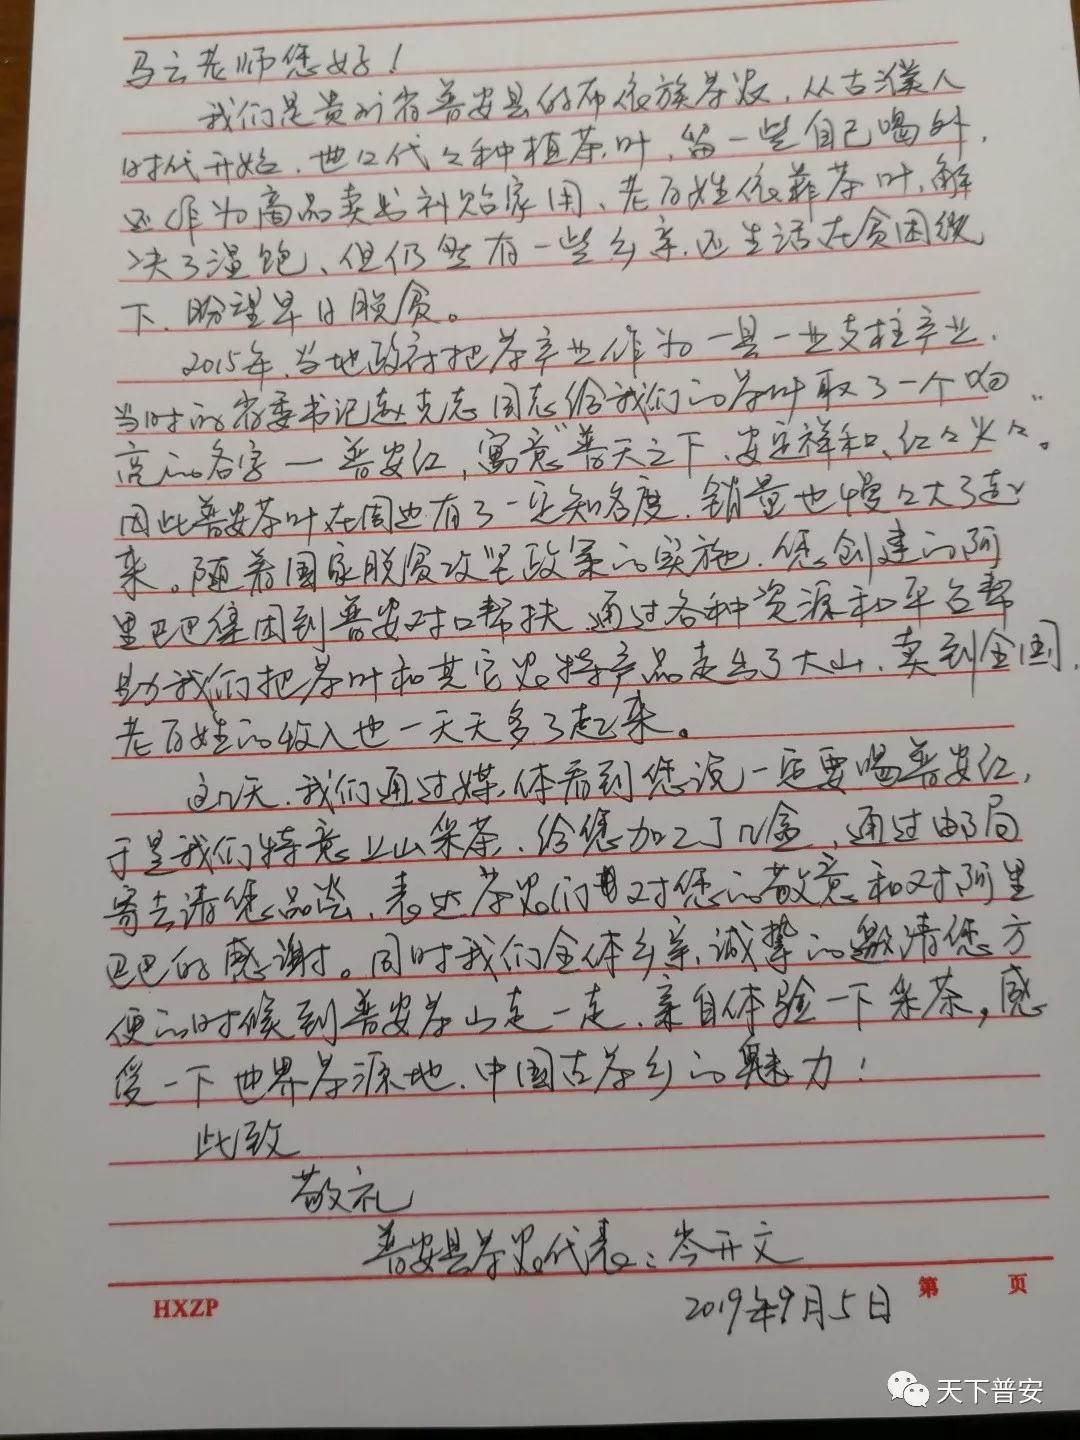 马云老师您好！
我们是贵州省普安县的布依族茶农，从古濮人
时代开始，世世代代种植茶叶，留一些自己喝外，
还作为商品卖出补贴家用、老百姓依靠茶叶，解
决了温饱、但仍然有一些乡亲，还生活在贫困线
下，盼望早日脱贫。
2015年，当地政府把茶产业作为一县一业支柱产业，
当时的省委书记赵克志同志给我们的茶叶取了一个响
亮的名字—普安红，寓意“普天之下、安定祥和、红红火火”。
因此普安茶叶在周边有了一定知名度，销量也慢慢大了起
来。随着国家脱贫攻坚政策的实施，您创建的阿
里巴巴集团到普安对口帮扶，通过各种资源和平台帮
助我们把茶叶和其它农特产品走出了大山，卖到全国，
老百姓的收入也一天天多了起来。
这几天，我们通过媒体看到您说一定要喝普安红，
于是我们特意上山采茶，给您加工了几盒，通过邮局
寄去请您品尝，表达茶农们对您的敬意和对阿里
巴巴的感谢。同时我们全体乡亲，诚挚的邀请您方
便的时候到普安茶山走一走，亲自体验一下采茶，感
受一下世界茶源地，中国古茶乡的魅力！
此致
敬礼
普安县茶农代表：岑开文
2019年9月5日
HXZP 第 页
天下普安